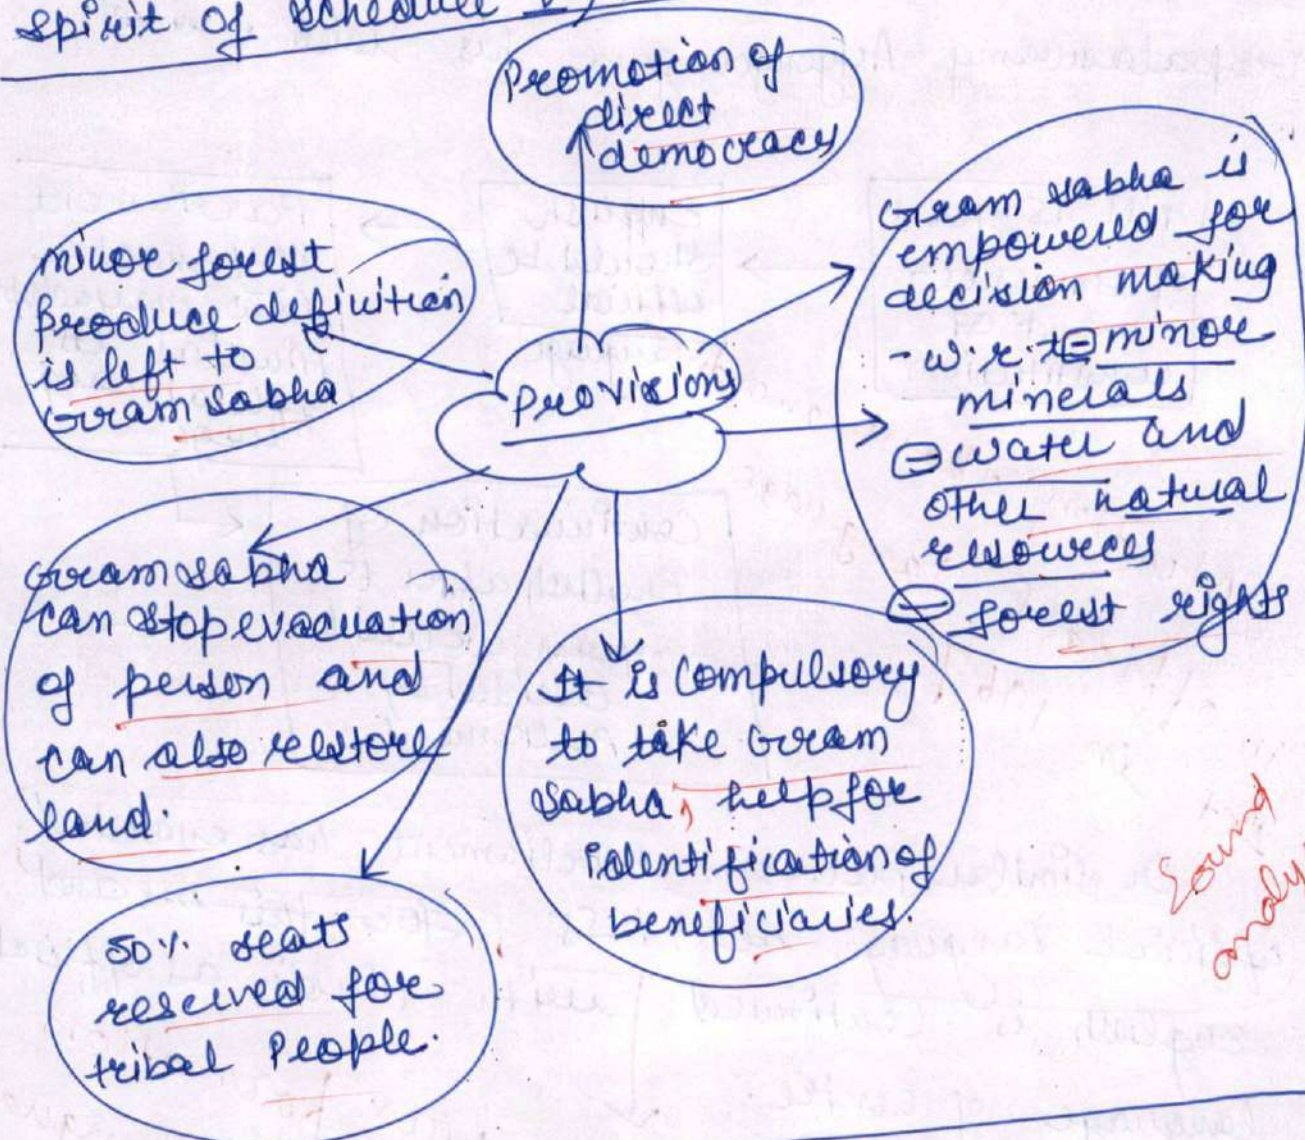 spirit of Schedule V
Promotion of
direct
democracy
minor forest
produce definition
is left to
Gram sabha
Provisions
Gram sabha is
empowered for
decision making
- w.r.t ⊖ minor
minerals
⊖ water and
other natural
resources
⊖ forest rights
Gram sabha
can stop evacuation
of person and
can also restore
land.
It is compulsory
to take Gram
sabha, help for
identification of
beneficiaries.
50% seats
reserved for
tribal People.